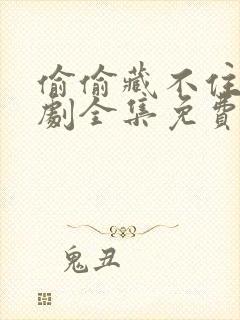 偷偷藏不住
劇全集免費
鬼丑